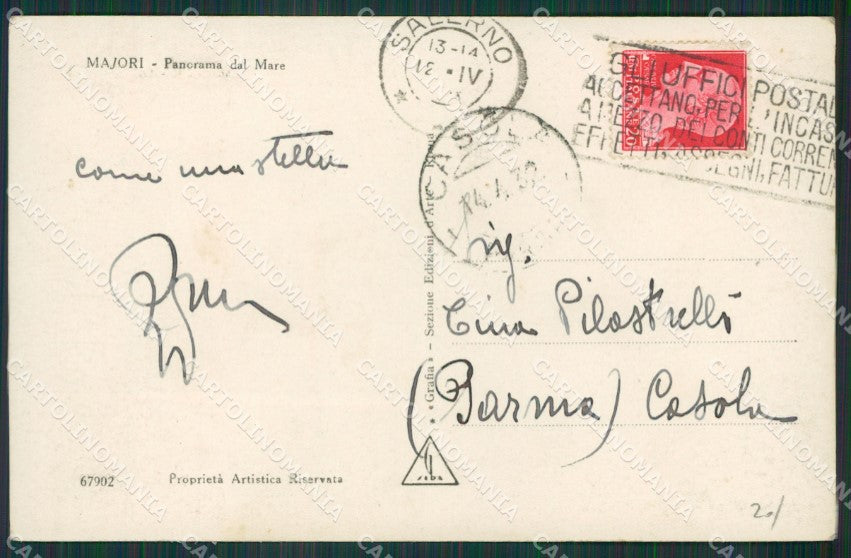 MAJORI - Panorama dal Mare
SALERNO
13-14
12 · IV
GLI UFFICI POSTALI
ACCETTANO, PER L'INCASSO
A MEZZO DEI CONTI CORRENTI
EFFETTI, ASSEGNI, FATTURE
20
CASOLA
14.4.30
come una stella
Sezione Edizioni d'Arte
"Grafia"
Cina Pilastrelli
(Parma) Casola
67902
Proprietà Artistica Riservata
20/
CARTOLINOMANIA